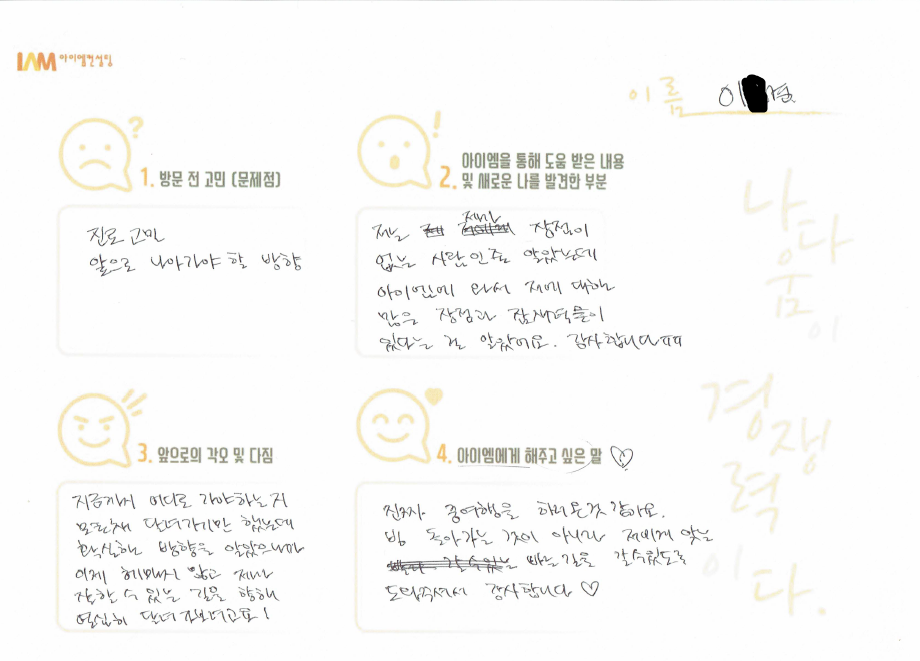 IAM 아이엠컨설팅
이름 이 경
1. 방문 전 고민 (문제점)
진로 고민
앞으로 나아가야 할 방향
2. 아이엠을 통해 도움 받은 내용
및 새로운 나를 발견한 부분
저는 제가 장점이
없는 사람인줄 알았는데
아이엠에 와서 저에 대한
많은 장점과 잠재력들이
있다는 걸 알았어요. 감사합니다ㅠㅠ
3. 앞으로의 각오 및 다짐
지금까지 어디로 가야하는지
모른채 달려가기만 했는데
확실한 방향을 알았으니까
이제 헤매지 않고 제가
잘할 수 있는 길을 향해
열심히 달려가보려고요!
4. 아이엠에게 해주고 싶은 말 ♡
진짜 중요행을 하러온것 같아요.
빙 돌아가는 것이 아니라 저에게 맞는
빠른 길을 갈 수있도록
도와주셔서 감사합니다 ♡
나다움이
경쟁력이다.